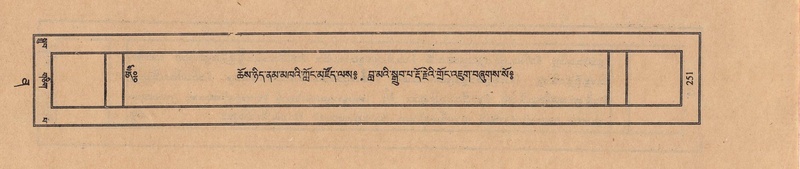 ཆོས་ཉིད་ནམ་མཁའི་ཀློང་མཛོད་ལས༔ བླ་མའི་སྒྲུབ་པ་རྡོ་རྗེའི་གྲོང་འཇུག་བཞུགས་སོ༔
251